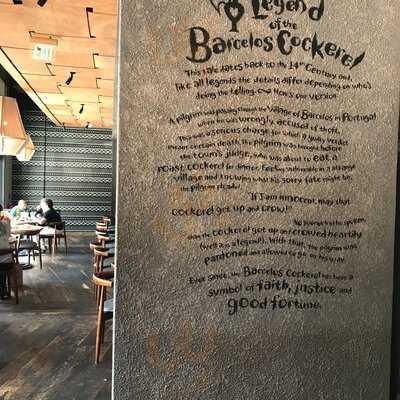 Legend
of the
Barcelos Cockerel
This tale dates back to the 14th Century and,
like all legends the details differ depending on who's
doing the telling. Here's our version.
A pilgrim was passing through the village of Barcelos in Portugal
when he was wrongly accused of theft.
This was a serious charge for which a guilty verdict
meant certain death. The pilgrim was brought before
the town's judge, who was about to eat a
roast cockerel for dinner. Feeling vulnerable in a strange
village and knowing what his sorry fate might be,
the pilgrim pleaded
"If I am innocent, may that
cockerel get up and crow!"
No sooner had he spoken,
than the cockerel got up and crowed heartily
(well it is a legend!). With that, the pilgrim was
pardoned and allowed to go on his way.
Ever since, the Barcelos Cockerel has been a
symbol of faith, justice and
good fortune.